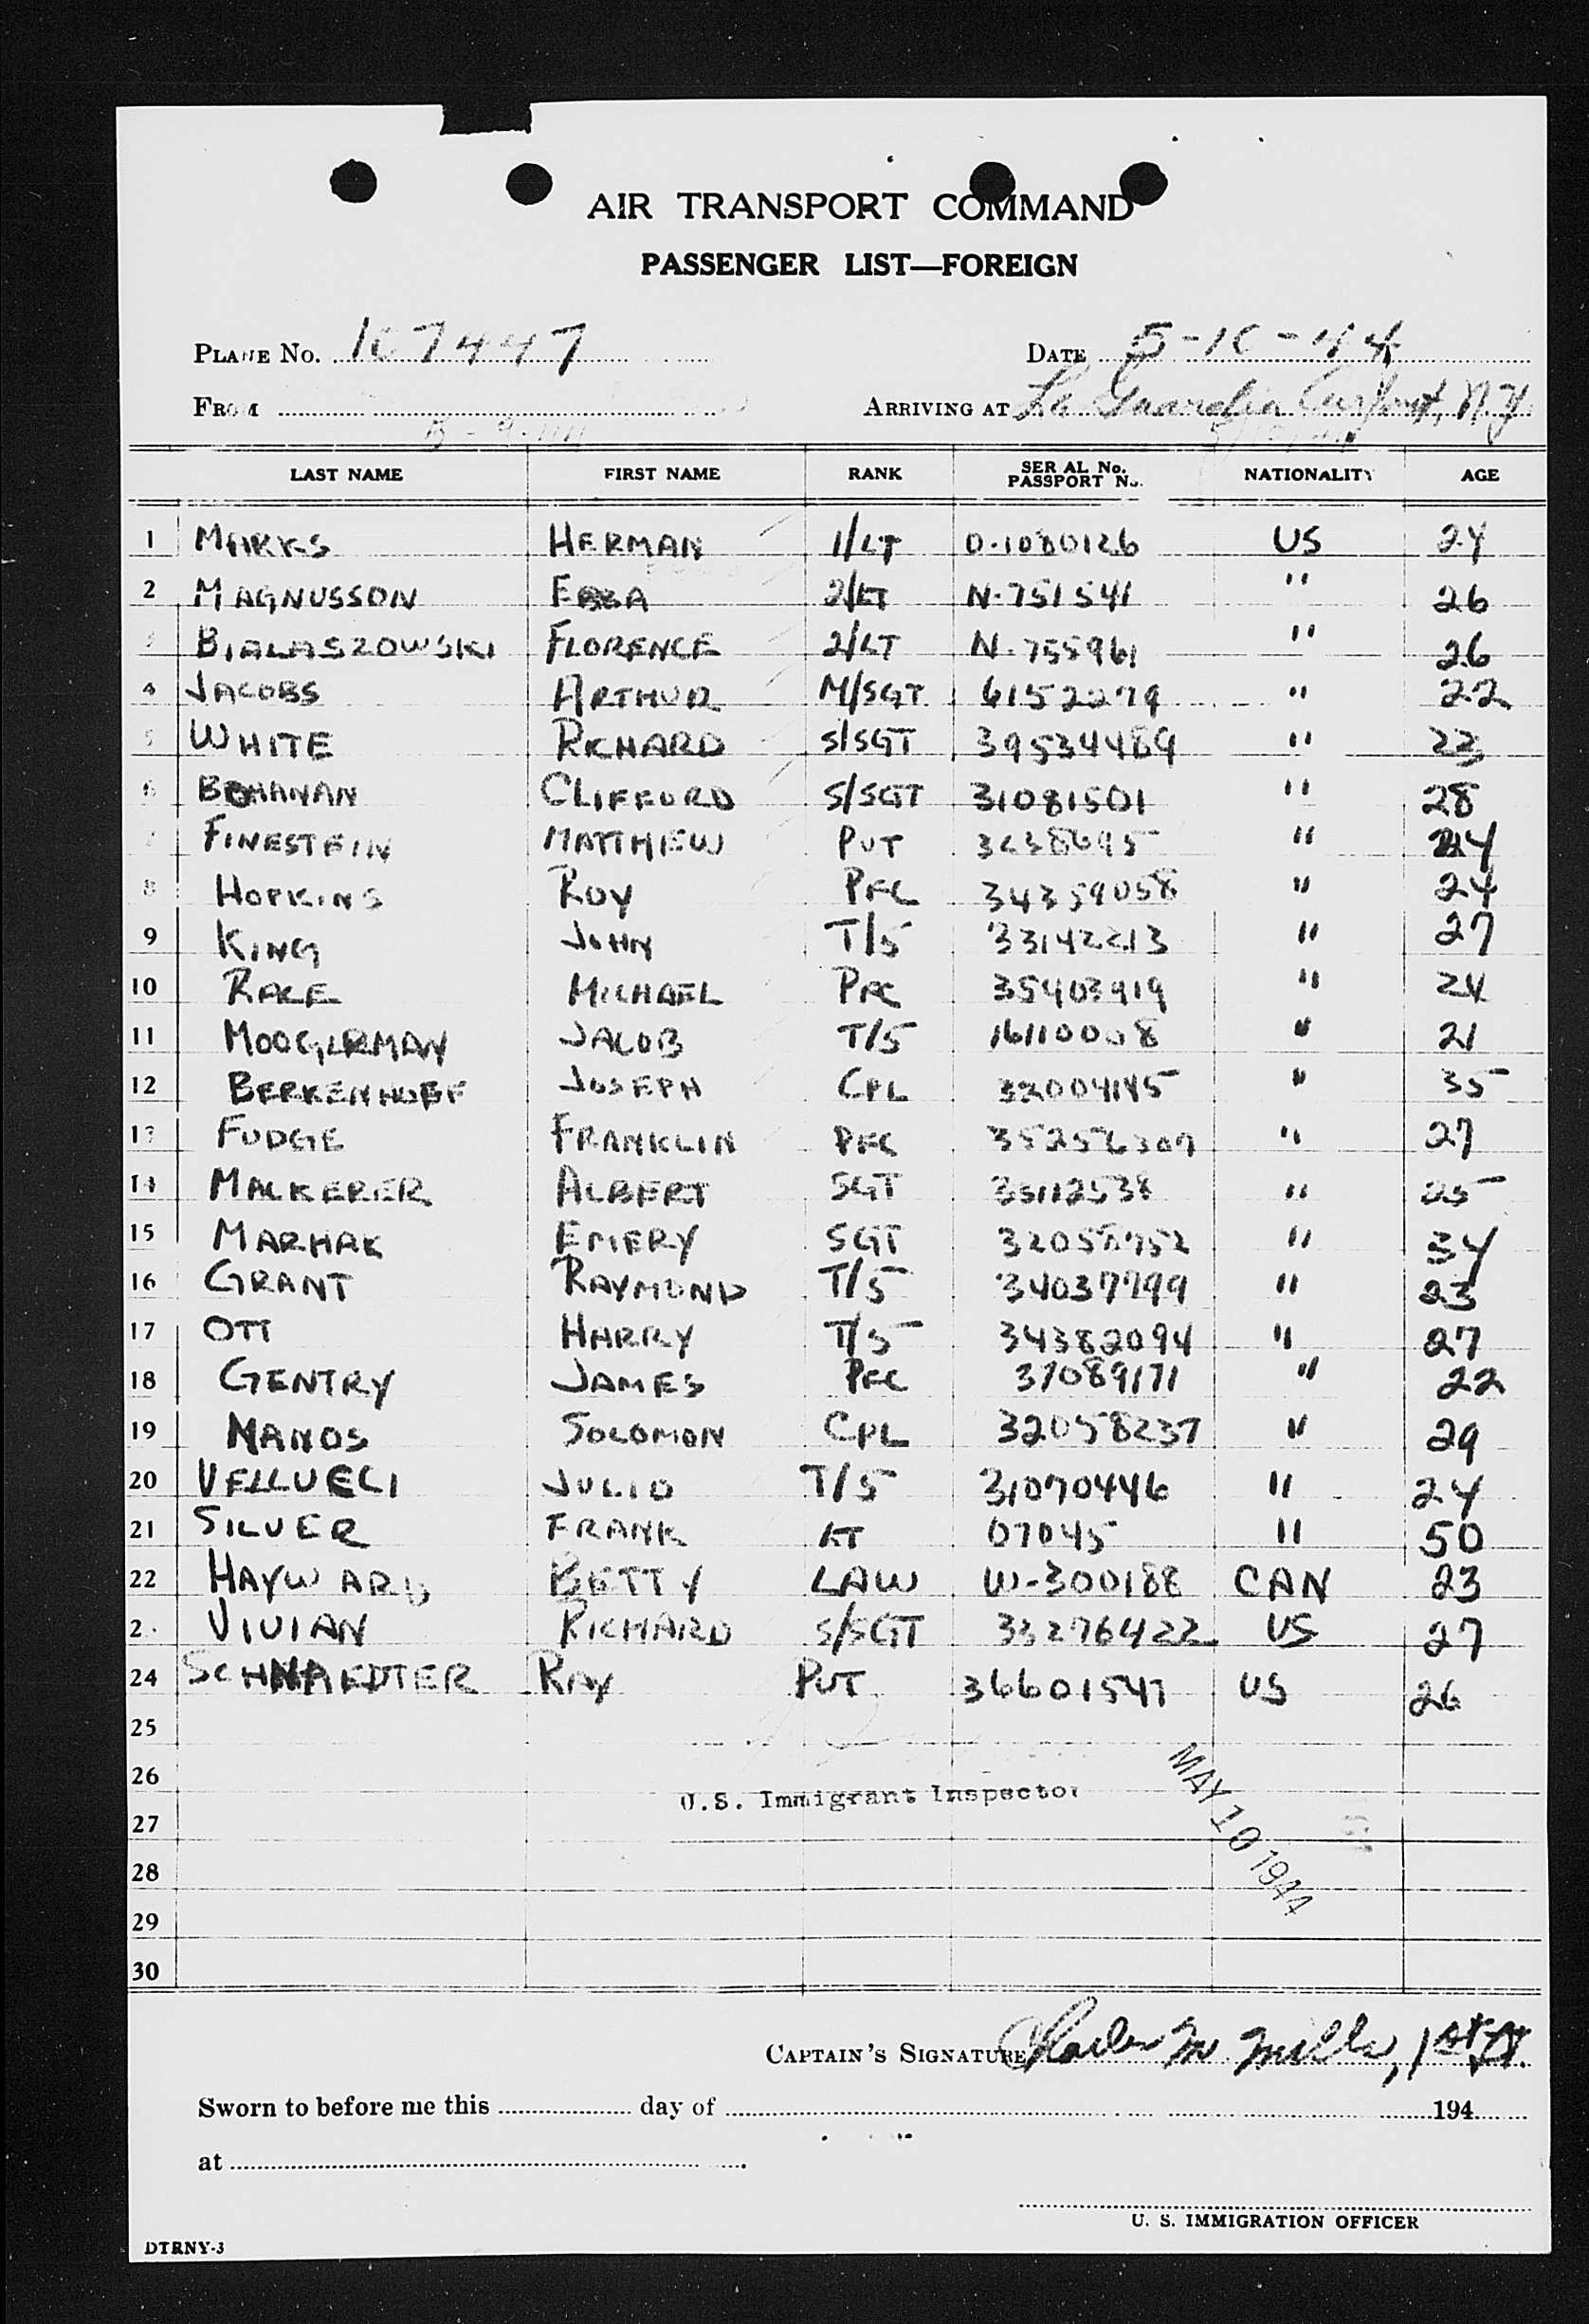 AIR TRANSPORT COMMAND
PASSENGER LIST—FOREIGN
PLANE No. 107447 DATE 5-10-44
FROM ARRIVING AT La Guardia Airport, N.Y.
LAST NAME FIRST NAME RANK SERIAL No. PASSPORT No. NATIONALITY AGE
1 MARKS HERMAN 1/LT O-1080126 US 24
2 MAGNUSSON EBBA 2/LT N-751541 " 26
3 BIALASZOWSKI FLORENCE 2/LT N-755961 " 26
4 JACOBS ARTHUR M/SGT 6152279 " 22
5 WHITE RICHARD S/SGT 39534489 " 23
6 BOHANAN CLIFFORD S/SGT 31081501 " 28
7 FINESTEIN MATTHEW PVT " 24
8 HOPKINS ROY PFC 34359058 " 24
9 KING JOHN T/5 33142213 " 27
10 RACE MICHAEL PFC 35403919 " 24
11 MOOGERMAN JACOB T/5 16110008 " 21
12 BERKENHOFF JOSEPH CPL 32004145 " 35
13 FUDGE FRANKLIN PFC 35256307 " 27
14 MACKERER ALBERT SGT 35112538 " 25
15 MARHAK EMERY SGT 32058752 " 34
16 GRANT RAYMOND T/5 34037799 " 23
17 OTT HARRY T/5 34382094 " 27
18 GENTRY JAMES PFC 37089171 " 22
19 NANOS SOLOMON CPL 32058237 " 29
20 VELLUECI JULIO T/5 31070446 " 24
21 SILVER FRANK LT 07045 " 50
22 HAYWARD BETTY LAW W-300188 CAN 23
23 VIVIAN RICHARD S/SGT 33276422 US 27
24 SCHNAEDTER RAY PVT 36601547 US 26
25
26
U.S. Immigrant Inspector
MAY 10 1944
27
28
29
30
CAPTAIN'S SIGNATURE Charles M Mills, 1st Lt.
Sworn to before me this day of 194
at
U. S. IMMIGRATION OFFICER
DTRNY-3